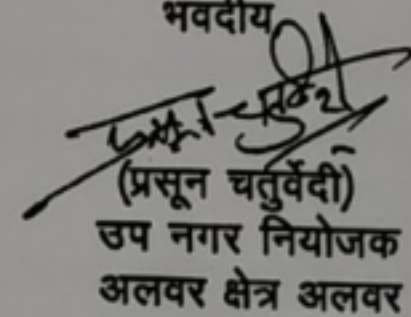 भवदीय
(प्रसून चतुर्वेदी)
उप नगर नियोजक
अलवर क्षेत्र अलवर